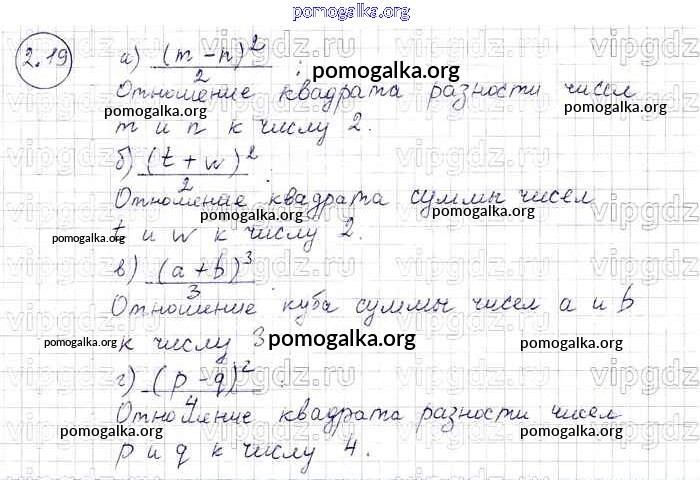 pomogalka.org
2.19 а) (m - n)² / 2 :
pomogalka.org
Отношение квадрата разности чисел
pomogalka.org pomogalka.org
m и n к числу 2.
vipgdz.ru
б) (t + w)² / 2 :
Отношение квадрата суммы чисел
pomogalka.org pomogalka.org
t и w к числу 2.
pomogalka.org
в) (a + b)³ / 3 :
Отношение куба суммы чисел a и b
к числу 3.
pomogalka.org pomogalka.org pomogalka.org
г) (p - q)² / 4 :
Отношение квадрата разности чисел
pomogalka.org pomogalka.org
p и q к числу 4.